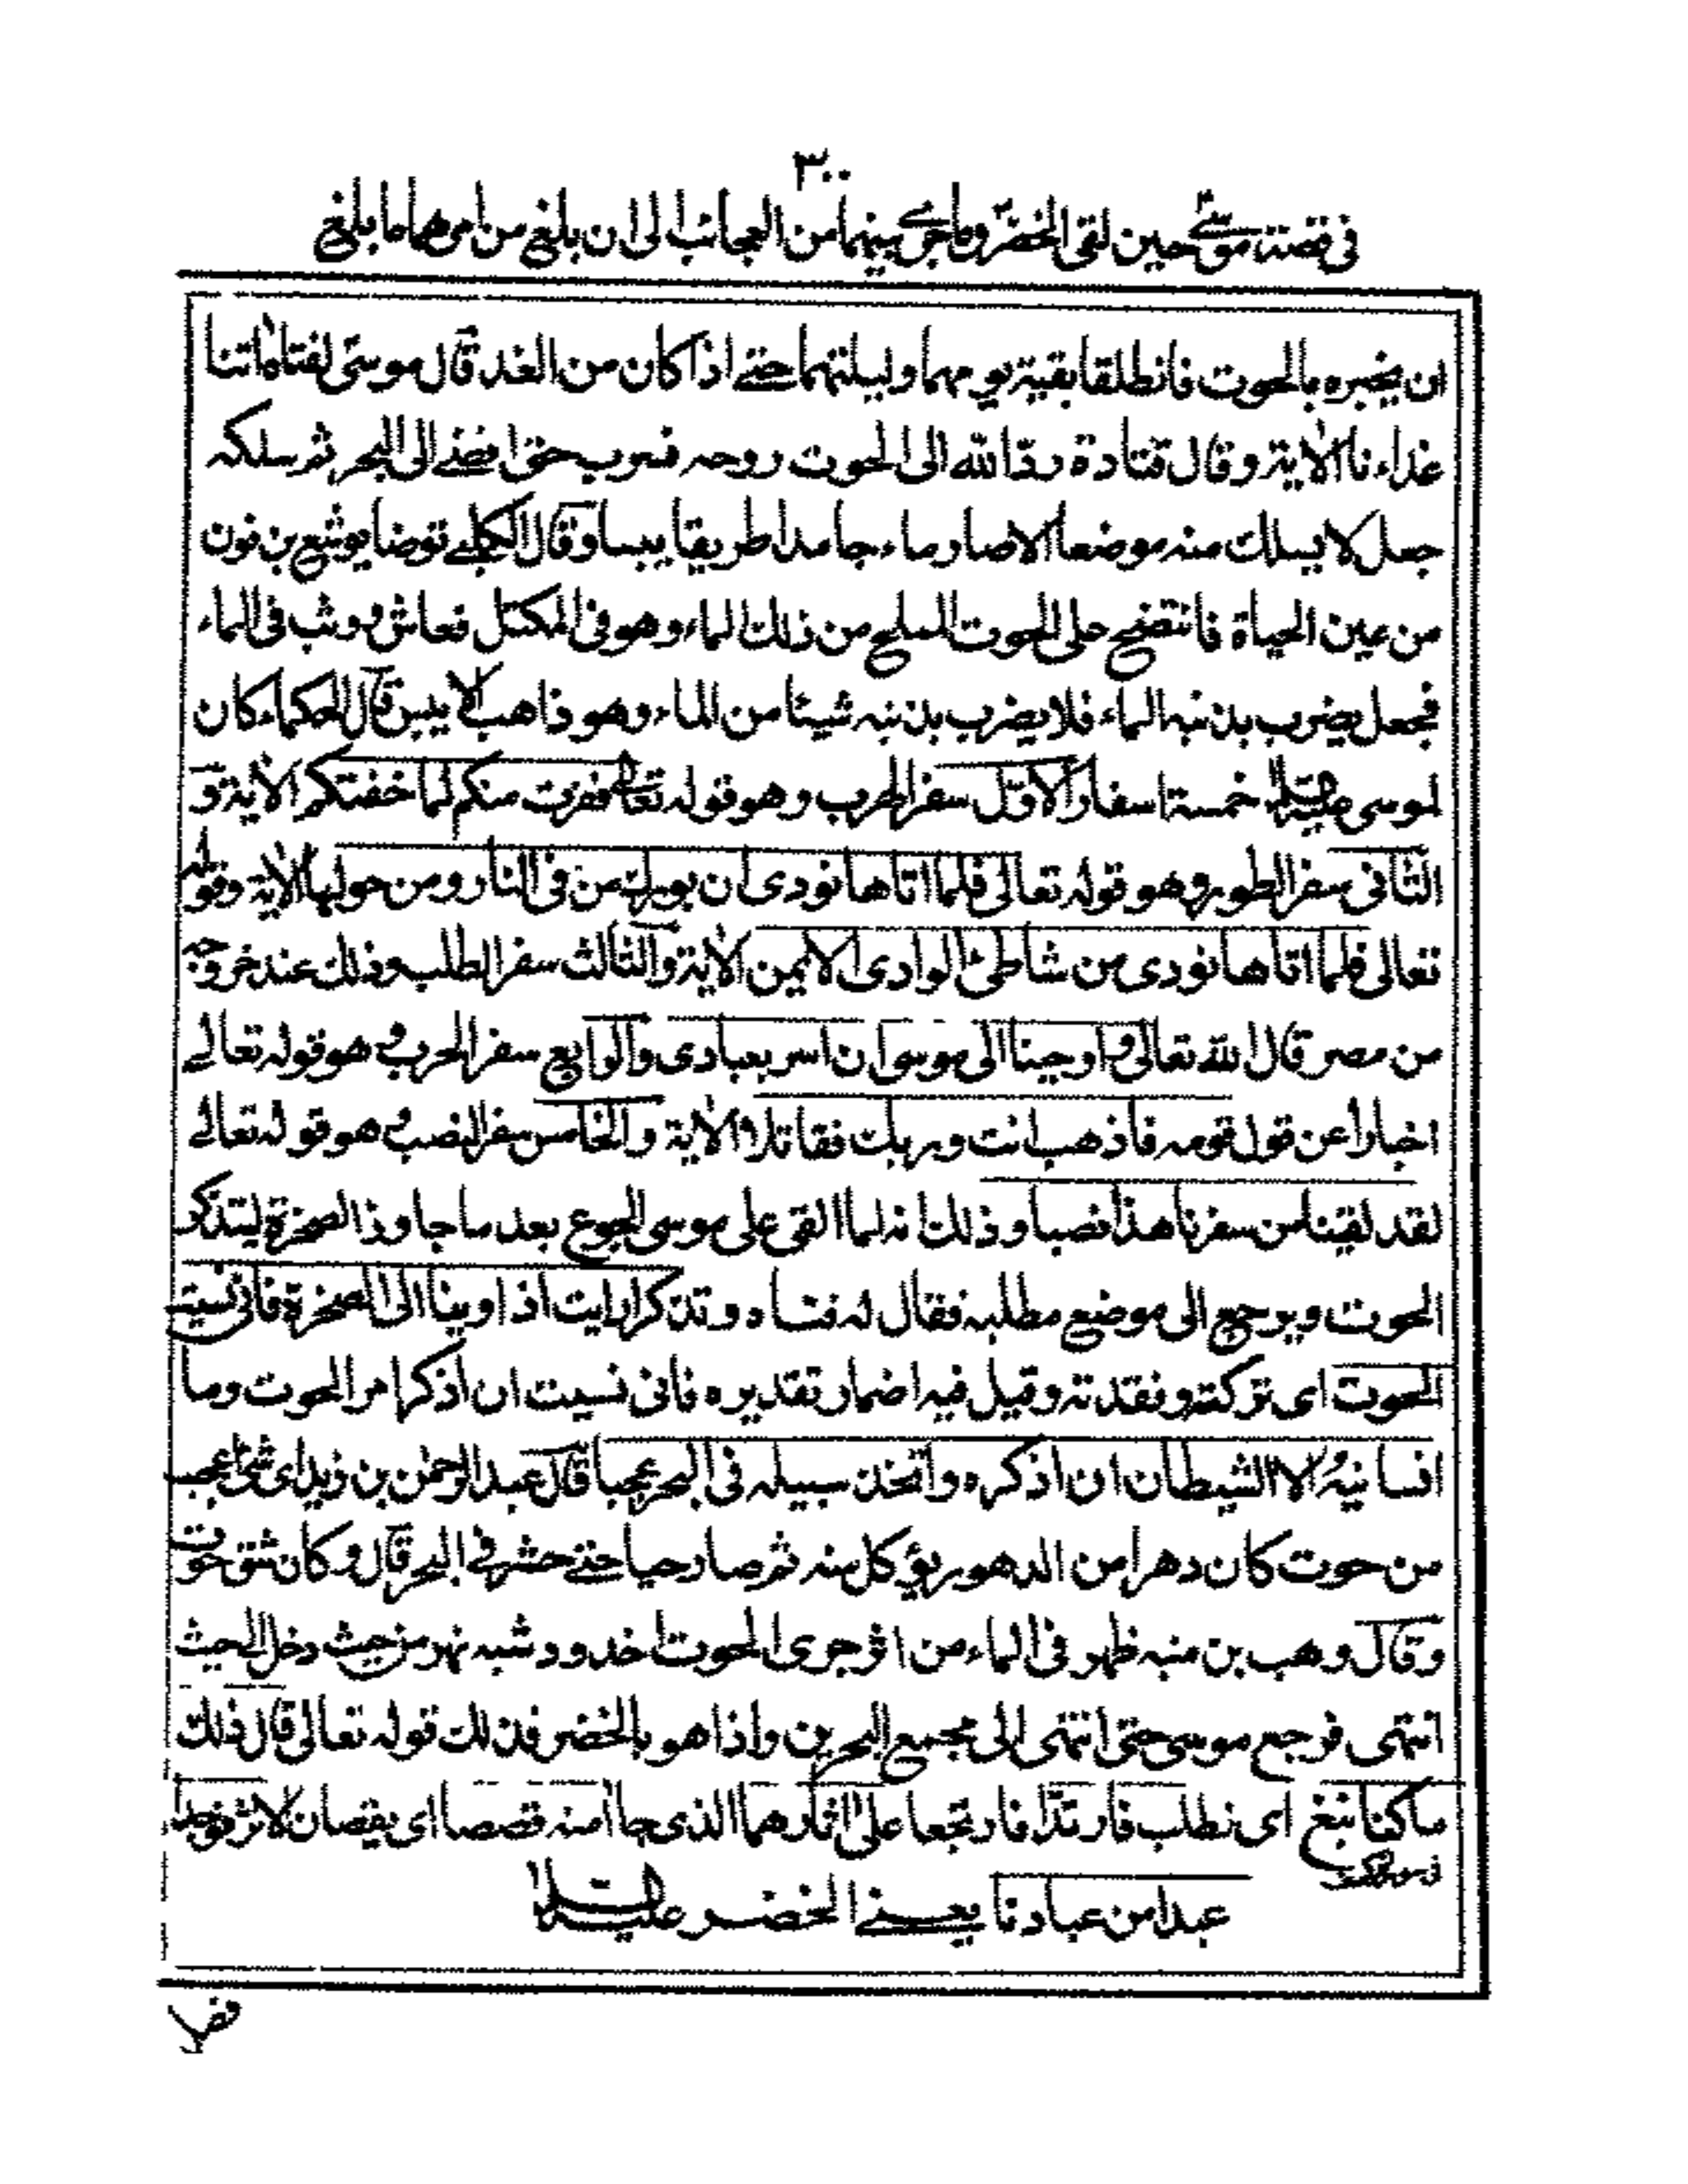 ٣٠٠
فى قصة موسى حين لقى الخضر وما جرى بينهما من العجائب الى ان بلغ من امرهما ما بلغ
ان يخبره بالحوت فانطلقا بقية يومهما وليلتهما حتى اذا كان من الغد قال موسى لفتاه اتنا
غداءنا الاية وقال قتادة رد الله الى الحوت روحه فسرب حتى افضى الى البحر ثم سلكه
جعل لا يسلك منه موضعا الا صار ماء جامدا طريقا يبسا وقال الكلبى توضا يوشع بن نون
من عين الحياة فانتضح على الحوت المليح من ذلك الماء وهو فى المكتل فعاش ووثب فى الماء
فجعل يضرب بذنبه الماء فلا يضرب بذنبه شيئا من الماء وهو ذاهب الا يبس قال الحكماء كان
لموسى عليه السلام خمسة اسفار الاول سفر الهرب وهو قوله تعالى ففررت منكم لما خفتكم الاية و
الثانى سفر الطور وهو قوله تعالى فلما اتاها نودى ان بورك من فى النار ومن حولها الاية وقوله
تعالى فلما اتاها نودى من شاطئ الوادى الايمن الاية والثالث سفر الطلب وذلك عند خروجه
من مصر قال الله تعالى واوحينا الى موسى ان اسر بعبادى والرابع سفر الحرب وهو قوله تعالى
اخبارا عن قول قومه فاذهب انت وربك فقاتلا الاية والخامس سفر النصب وهو قوله تعالى
لقد لقينا من سفرنا هذا نصبا وذلك انه لما القى على موسى الجوع بعد ما جاوز الصخرة ليتذكر
الحوت ويرجع الى موضع مطلبه فقال له فتاه وتذكر ارايت اذ اوينا الى الصخرة فانى نسيت
الحوت اى تركته وفقدته وقيل فيه اضمار تقديره فانى نسيت ان اذكر امر الحوت وما
انسانيه الا الشيطان ان اذكره واتخذ سبيله فى البحر عجبا قال عبد الرحمن بن زيد اى شئ اعجب
من حوت كان دهرا من الدهور يؤكل منه ثم صار حيا حتى حشر فى البحر قال وكان شق حوت
وقال وهب بن منبه ظهر فى الماء من اثر جرى الحوت اخدود شبه نهر من حيث دخل الى حيث
انتهى فرجع موسى حتى انتهى الى مجمع البحرين واذا هو بالخضر فذلك قوله تعالى قال ذلك
ما كنا نبغ اى نطلب فارتدا فارتجعا على اثارهما الذى جاا منه قصصا اى يقصان الاثر فوجدا
عبدا من عبادنا يعنى الخضر عليه السلام